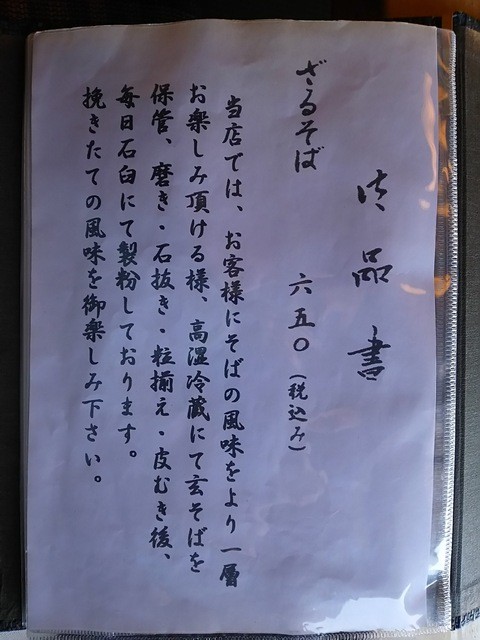 御品書
ざるそば 六五〇（税込み）
当店では、お客様にそばの風味をより一層
お楽しみ頂ける様、高湿冷蔵にて玄そばを
保管、磨き・石抜き・粒揃え・皮むき後、
毎日石臼にて製粉しております。
挽きたての風味を御楽しみ下さい。